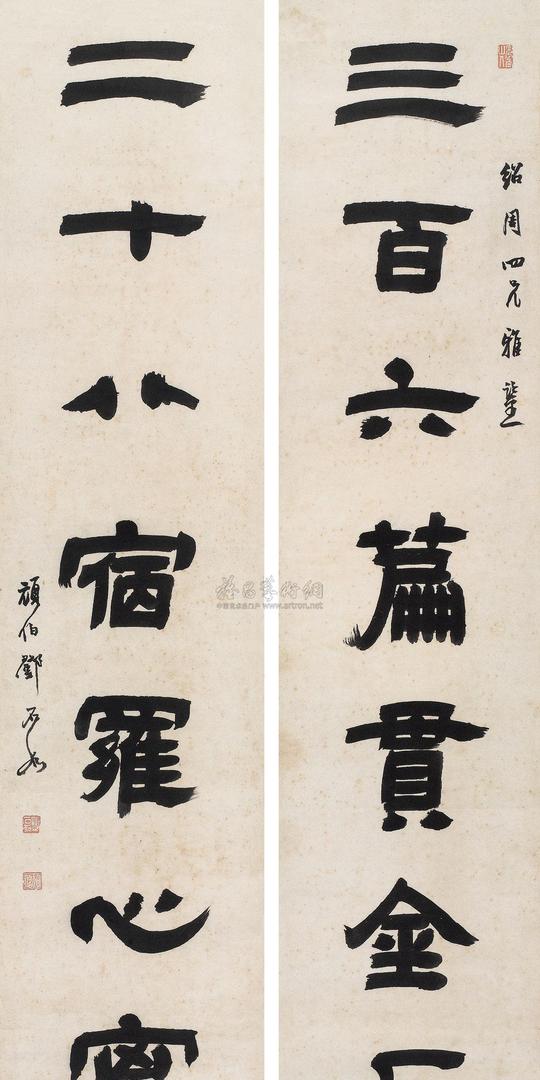 紹周四兄雅鑒
三百六篇貫金
二十八宿羅心
頑伯鄧石如
雅昌藝術網
www.artron.net